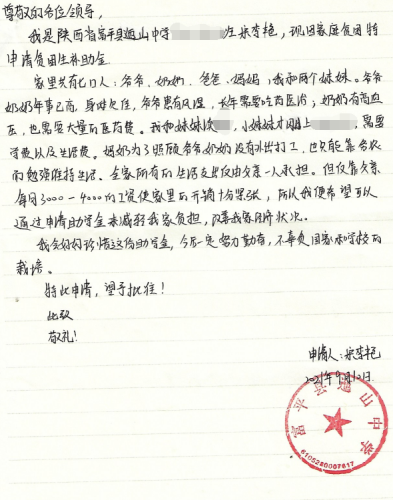 尊敬的各位领导,
我是陕西省富平县迤山中学 生
申请贫困生补助金
家里共有七口人:爷爷、奶奶、爸爸、妈妈,我和两个妹妹。爷爷
奶奶年事已高,身体欠佳,爷爷患有风湿,长年需要吃药医治;奶奶有高血
压,也需要大量的医药费。我和妹妹 小妹妹才刚上 需要
学费以及生活费。妈妈为了照顾爷爷奶奶没有外出打工,也只能靠务农
的勉强维持生活。全家所有的生活支出仅由父亲一人承担。但仅靠父亲
每月3000-4000的工资使家里的开销十分紧张,所以我便希望可以
通过申请助学金来减轻我家负担,改善我家经济状况。
我会好好珍惜这份助学金,今后一定努力勤奋,不辜负国家和学校的
栽培。
特此申请,望予批准!
此致
敬礼!
申请人:
2021年9月12日
富平县迤山中学
6105280007817